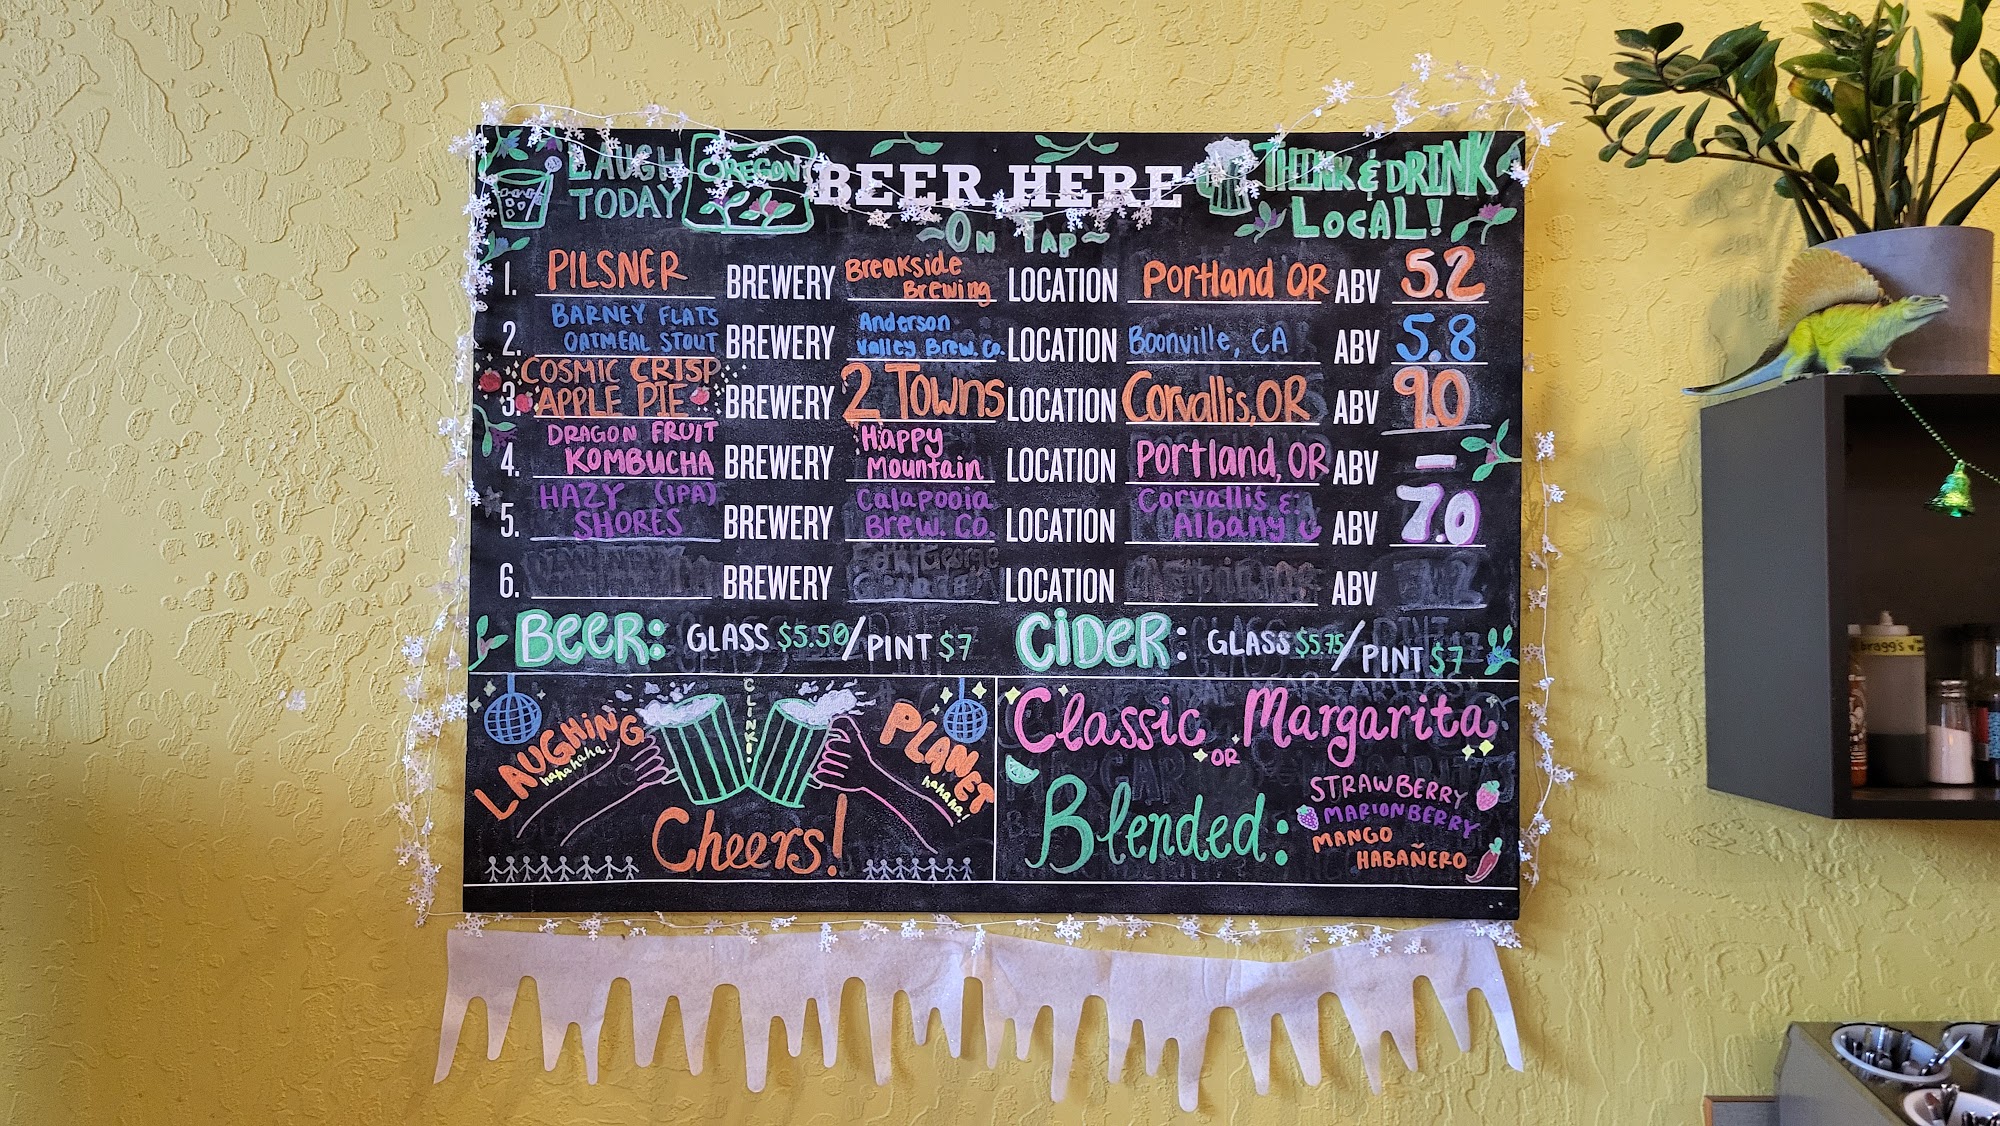 LAUGH
TODAY
OREGON
BEER HERE
~On Tap~
THINK & DRINK
LOCAL!
1. PILSNER BREWERY Breakside Brewing LOCATION Portland OR ABV 5.2
2. BARNEY FLATS OATMEAL STOUT BREWERY Anderson Valley Brew. Co. LOCATION Boonville, CA ABV 5.8
3. COSMIC CRISP APPLE PIE BREWERY 2 Towns LOCATION Corvallis, OR ABV 9.0
4. DRAGON FRUIT KOMBUCHA BREWERY Happy Mountain LOCATION Portland, OR ABV -
5. HAZY (IPA) SHORES BREWERY Calapooia Brew. Co. LOCATION Corvallis & Albany ABV 7.0
6. BREWERY LOCATION ABV
BEER: GLASS $5.50/PINT $7
CIDER: GLASS $5.75/PINT $7
LAUGHING
hahahaha!
CLINK!
PLANET
hahaha!
Cheers!
Classic Margarita
OR
Blended:
STRAWBERRY
MARIONBERRY
MANGO
HABAÑERO
Bragg's